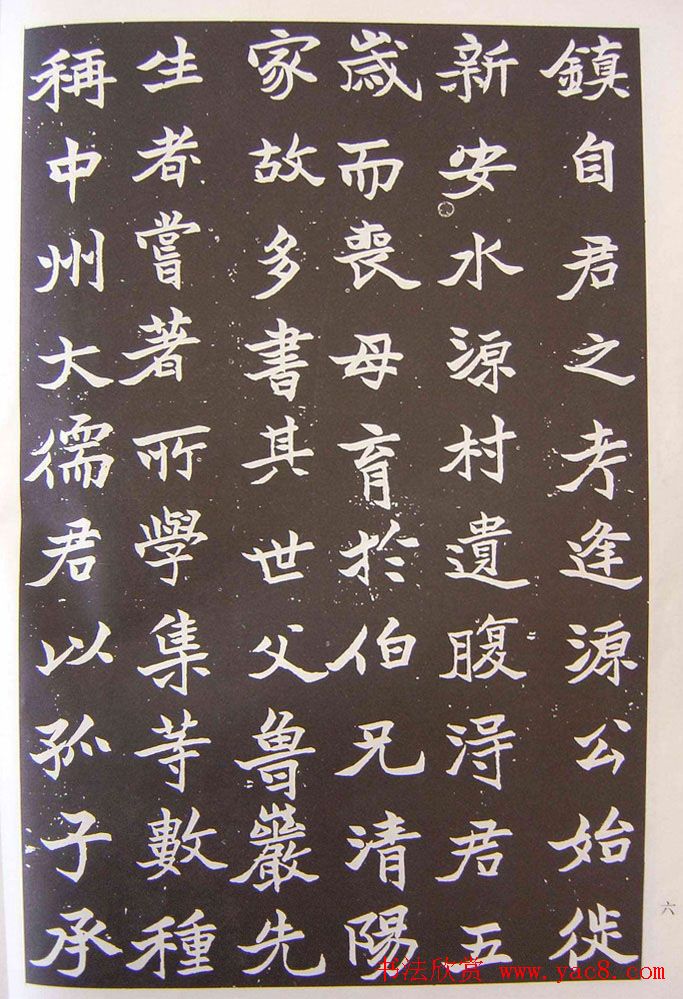 鎮自君之考逢源公始徙
新安水源村遺腹淂君五
歲而喪母育於伯兄清陽
家故多書其世父魯巖先
生者嘗著所學集等數種
稱中州大儒君以孤子承
六
书法欣赏 www.yac8.com